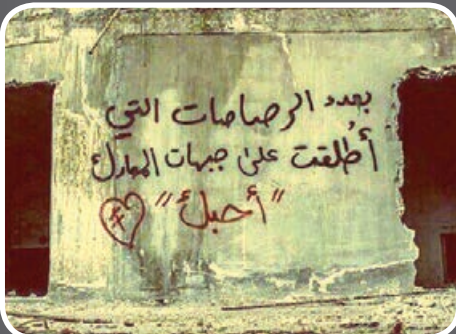 بعدد الرصاصات التي
أُطلقت على جبهات المعارك
"أحبك"